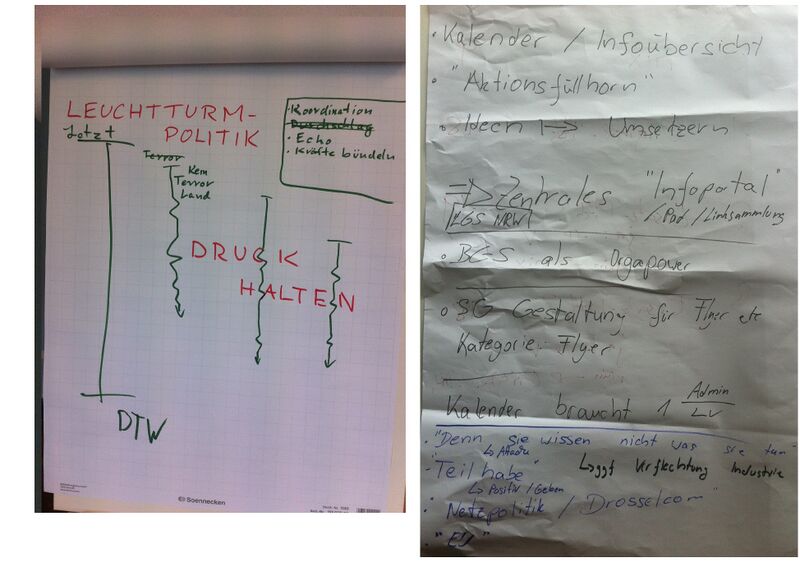 LEUCHTTURM-
POLITIK
Jetzt
Terror
Kein
Terror
Land
• Koordination
• Durchschlag
• Echo
• Kräfte bündeln
DRUCK
HALTEN
DTW
Soennecken
• Kalender / Infoübersicht
• "Aktionsfüllhorn"
• Ideen → Umsetzern
=> Zentrales "Infoportal"
LGS NRW / Pad / Linksammlung
• als Orgapower
• SG Gestaltung für Flyer etc
Kategorie: Flyer
Kalender braucht 1 Admin
LV
• "Denn sie wissen nicht was sie tun"
↳ ggf Verflechtung Industrie
- "Teilhabe"
↳ Positiv / Geben
• Netzpolitik / Drosselcom"
• "EU"